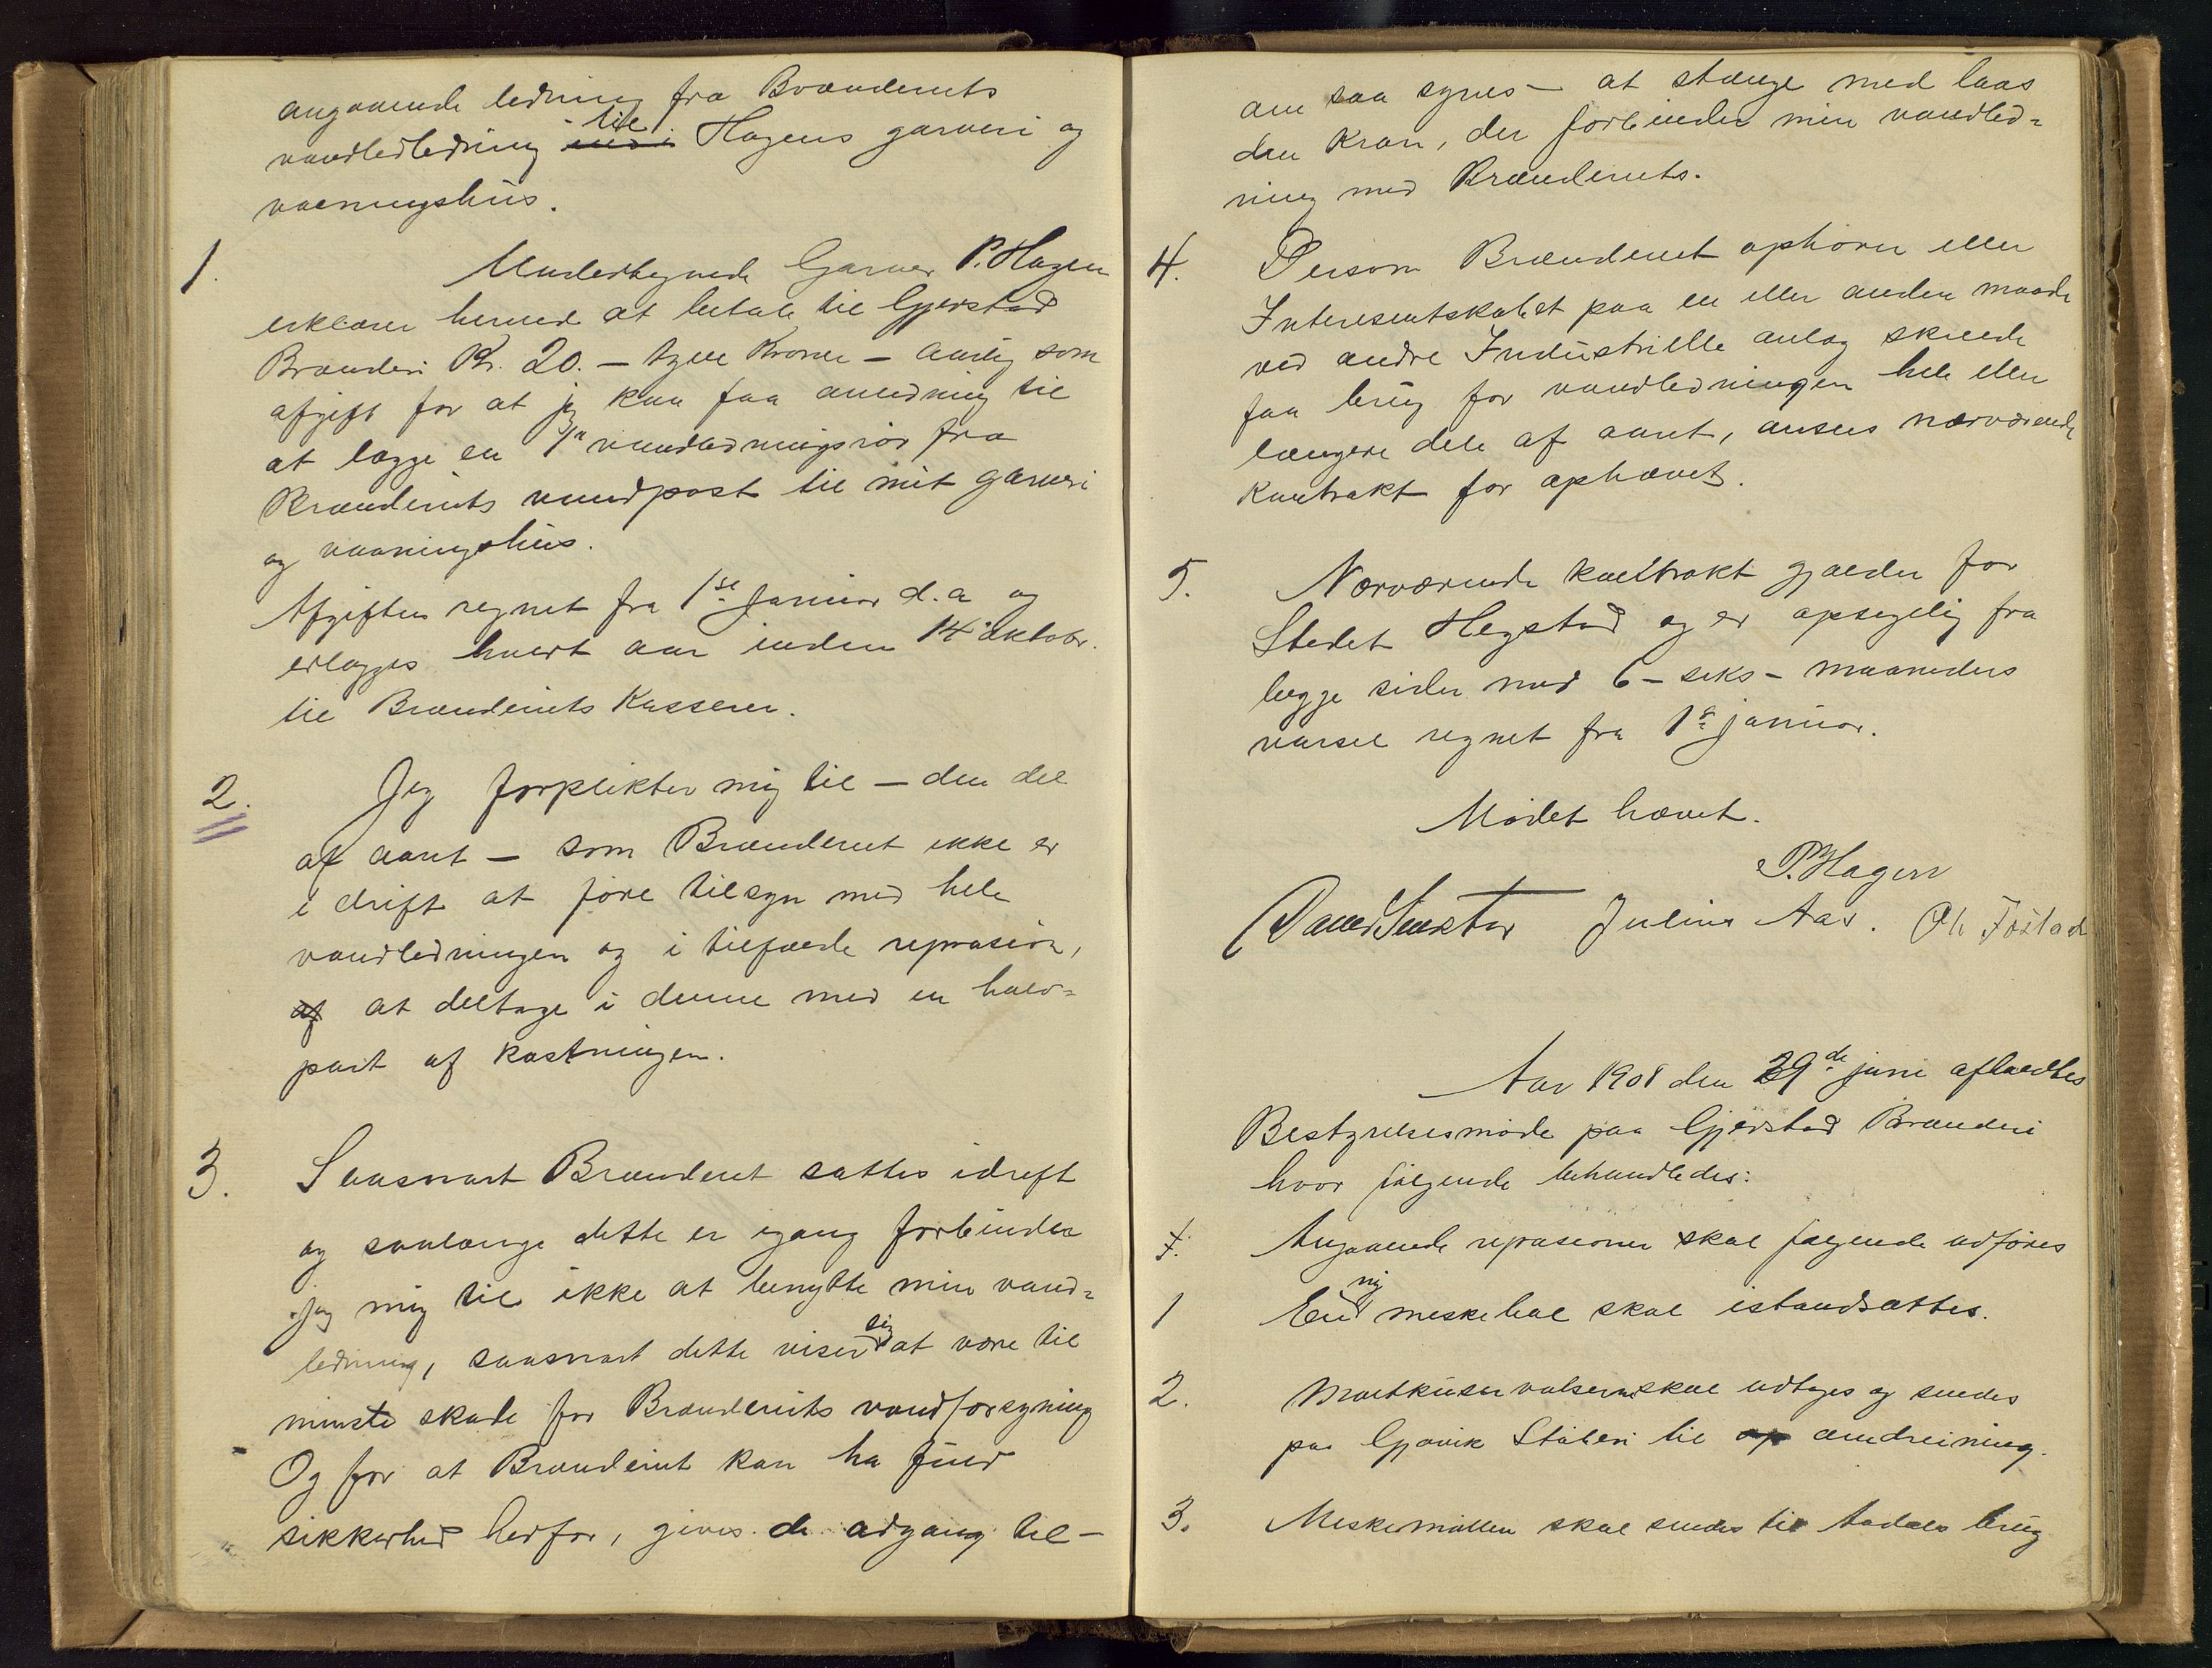 angaaende ledning fra Brænderiets
vandledledning til Hagens garveri og
vaaningshus.
1. Undertegnede Garver P. Hagen
erklærer herved at betale til Gjerstad
Brænderi Kr. 20. – tyve Kroner – aarlig som
afgift for at jeg kan faa anledning til
at lægge en 1" vandledningsrør fra
Brænderiets vandpost til mit garveri
og vaaningshus.
Afgiften regnet fra 1ste Januar d.a og
erlægges hvert aar inden 14 oktobr.
til Brænderiets Kasserer.
2. Jeg forplikter mig til – den del
af aaret – som Brænderiet ikke er
i drift at føre tilsyn med hele
vandledningen og i tilfælde reprasion,
af at deltage i denne med en halv=
part af kostningen.
3. Saasnart Brænderiet sættes idrift
og saalænge dette er igang forbinder
jeg mig til ikke at benytte min vand=
ledning, saasnart dette viser sig at være til
minste skade for Brænderiets vandforsyning
Og for at Brænderiet kan ha fuld
sikkerhed herfor, gives de adgang til –
om saa synes – at stænge med laas
den Kran, der forbinder min vandled=
ning med Brænderiets.
4. Dersom Brænderiet ophører eller
Interesentskabet paa en eller anden maade
ved andre Industrielle anlæg skulde
faa brug for vandledningen hele eller
længere dele af aaret, ansees nærværende
Kontrakt for ophævet.
5. Nærværende kontrakt gjælder for
Stedet Hegstad og er opsigelig fra
begge sider med 6 – seks – maaneders
varsel regnet fra 1ste januar.
Mødet hævet.
P. Hagen
Julius Aas. Ole Fostad
Aar 1908 den 29de juni afholdtes
Bestyrelsesmøde paa Gjerstad Brænderi
hvor følgende behandledes:
Angaaende reprasioner skal følgende udføres
1 En ny meskehal skal istandsættes.
2. Maltknuservalserne skal udtages og sendes
paa Gjøvik Støberi til op omdreining.
3. Meskemøllen skal sendes til Aadals brug